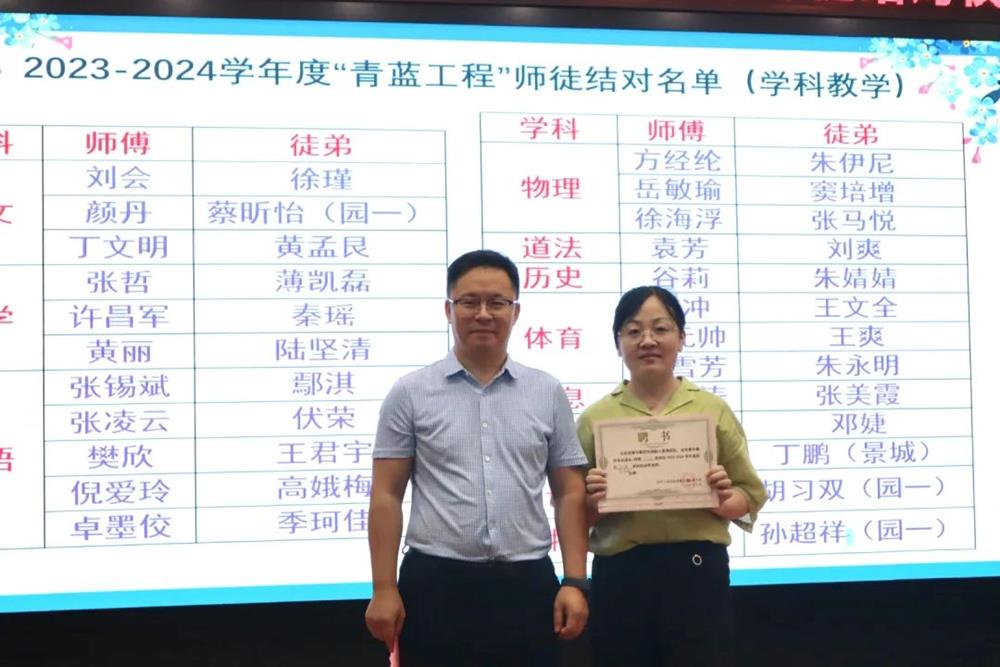 2023-2024学年度“青蓝工程”师徒结对名单（学科教学）
科 师傅 徒弟
刘会 徐瑾
文 颜丹 蔡昕怡（园一）
丁文明 黄孟艮
张哲 薄凯磊
学 许昌军 秦瑶
黄丽 陆坚清
张锡斌 鄢淇
张凌云 伏荣
语 樊欣 王君宇
倪爱玲 高娥梅
卓墨佼 季珂佳
学科 师傅 徒弟
物理 方经纶 朱伊尼
岳敏瑜 窦培增
徐海浮 张马悦
道法 袁芳 刘爽
历史 谷莉 朱婧婧
体育 冲 王文全
帅 王爽
雪芳 朱永明
息 张美霞
邓婕
丁鹏（景城）
胡习双（园一）
孙超祥（园一）
聘书